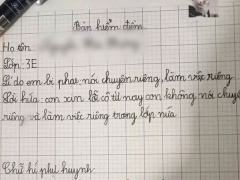 Bản kiểm điểm
Họ tên
Lớp 3E
Lí do em bị phạt nói chuyện riêng, làm việc riêng
Lời hứa: con xin lỗi cô từ nay con không nói chuyện
riêng và làm việc riêng trong lớp nữa
Chữ kí phụ huynh